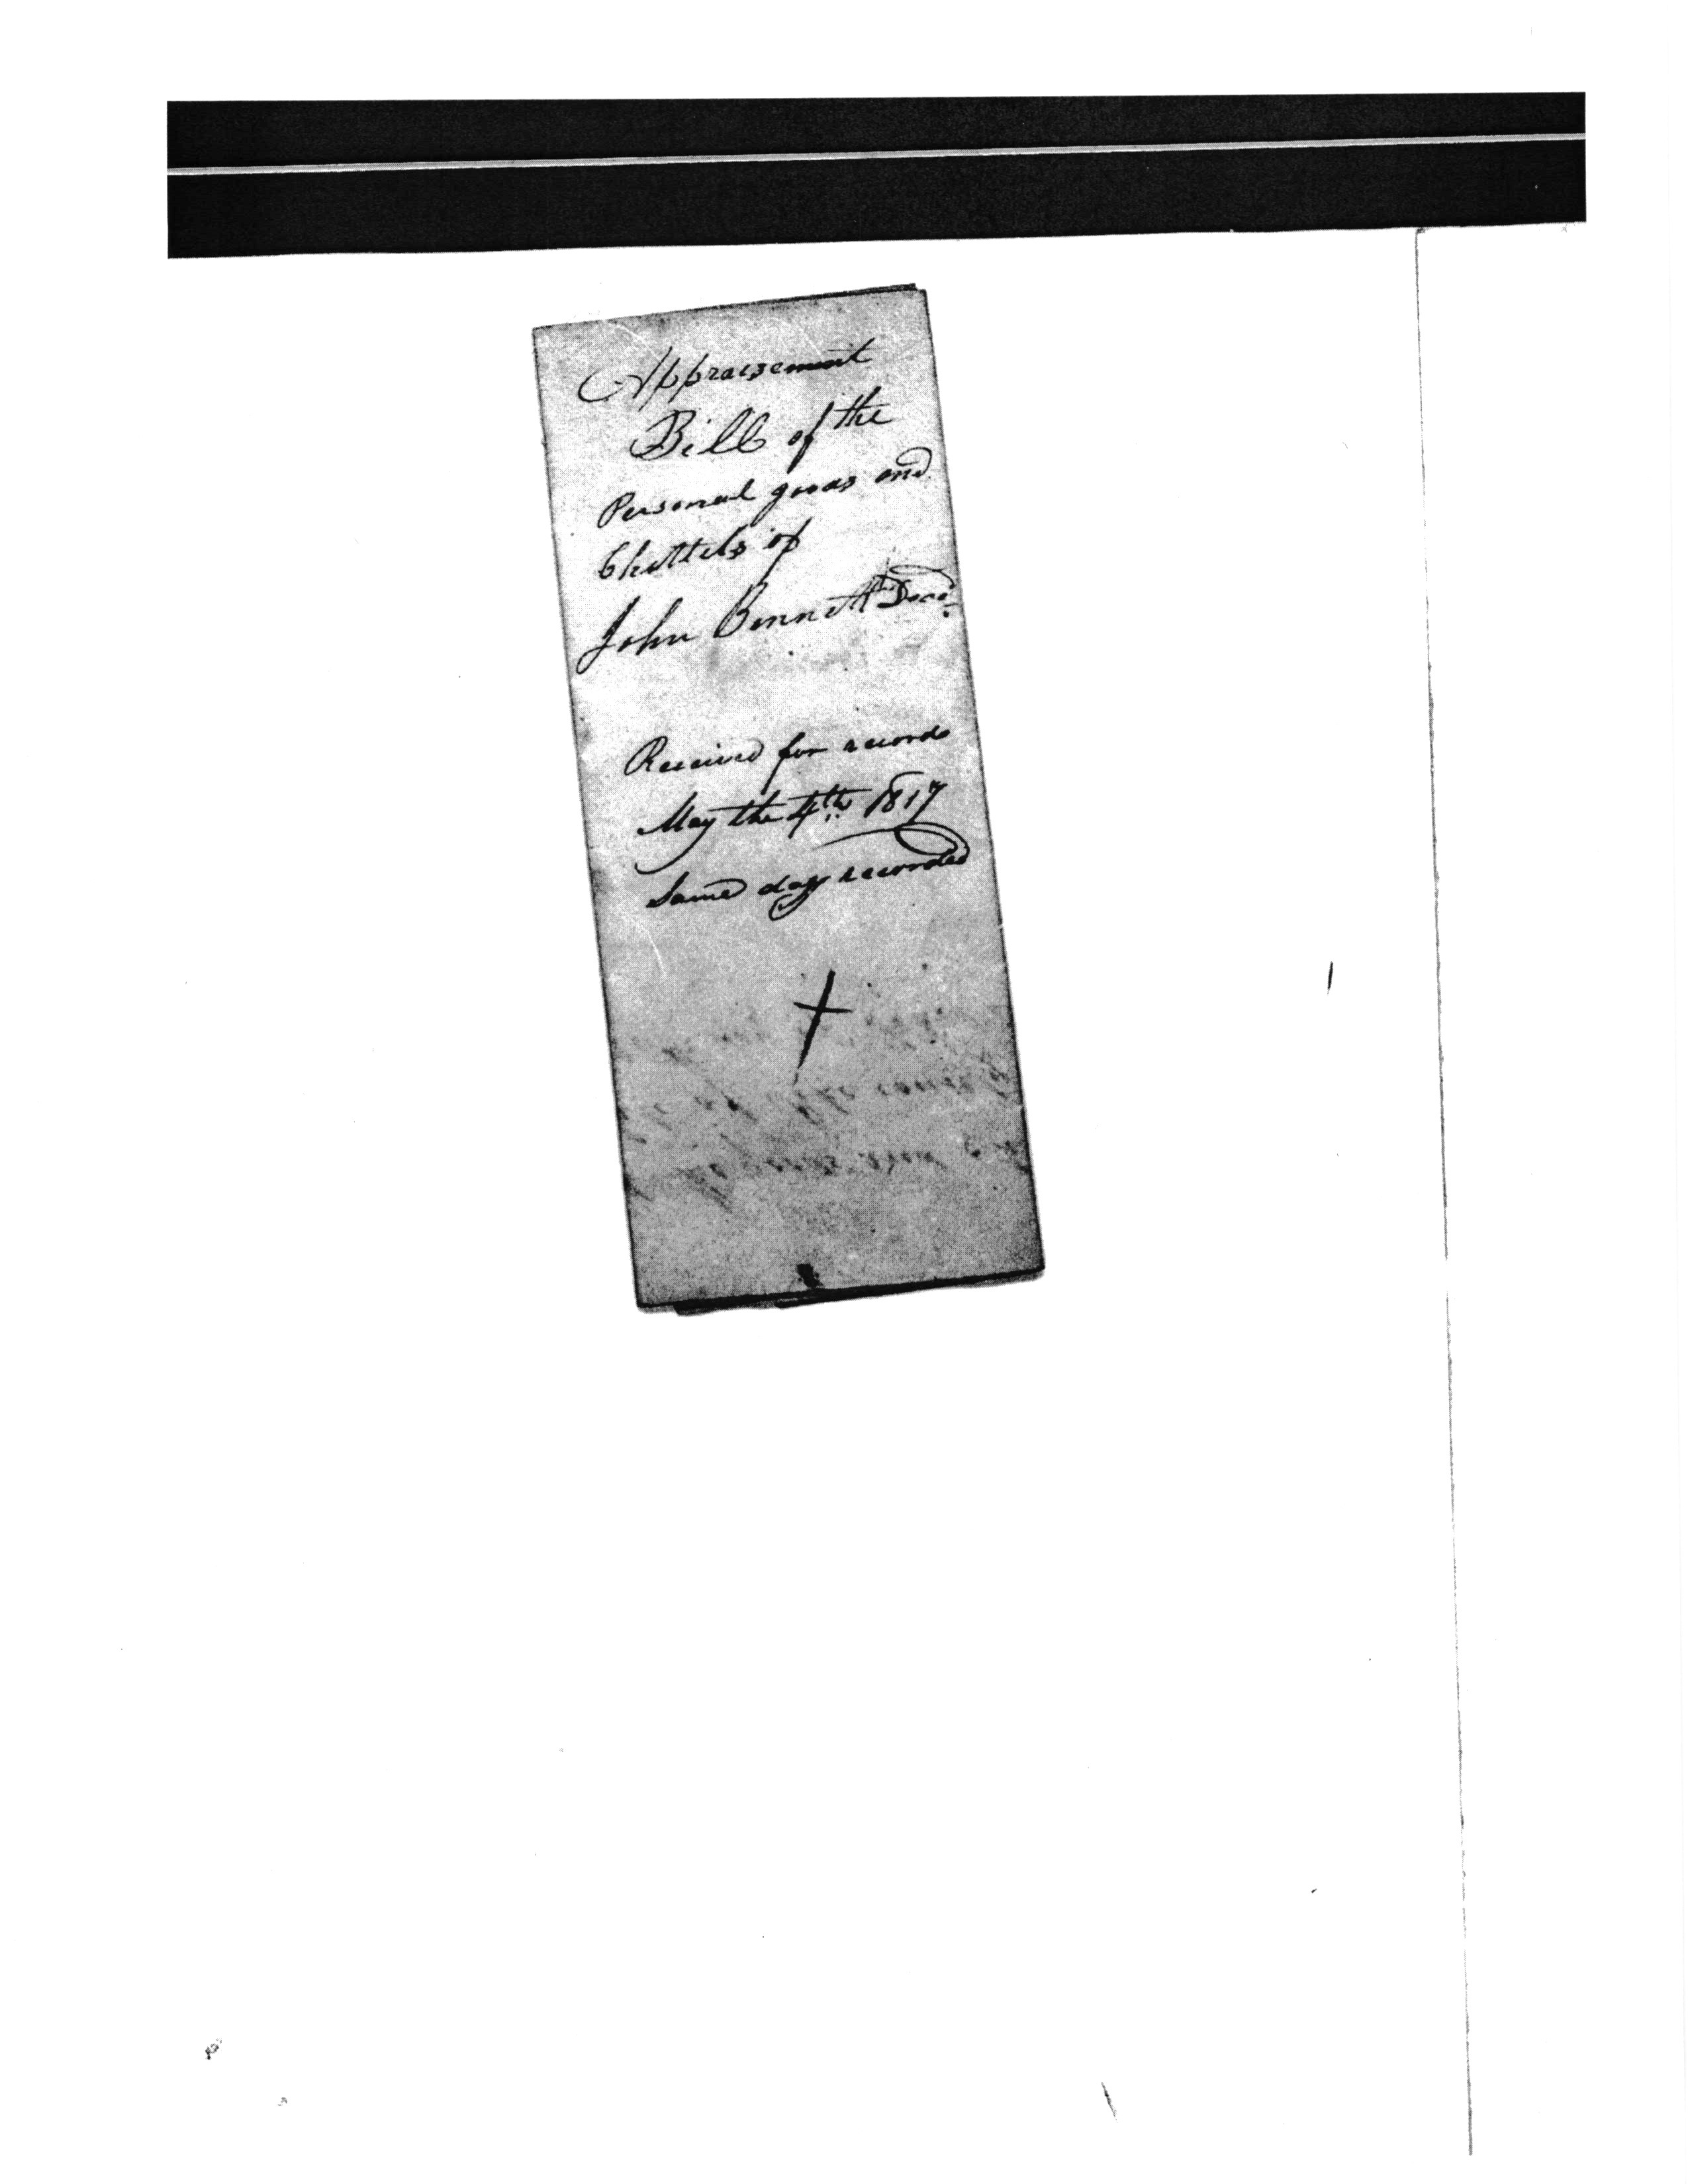 Appraisement
Bill of the
Personal goods and
Chattels of
John Bennett Decd
Received for record
May the 4th 1817
Same day recorded